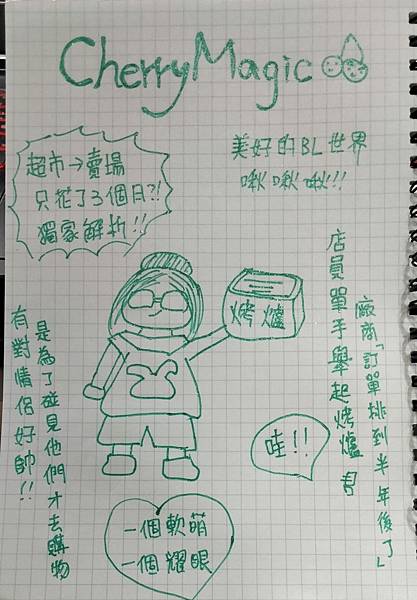 CherryMagic
超市→賣場
只花了3個月?!
獨家解析!!
美好的BL世界
啾啾啾!!!
廠商「訂單排到半年後了」
店員單手舉起烤爐
烤爐
哇!!
是為了碰見他們才去購物
有對情侶好帥!!
一個軟萌
一個耀眼